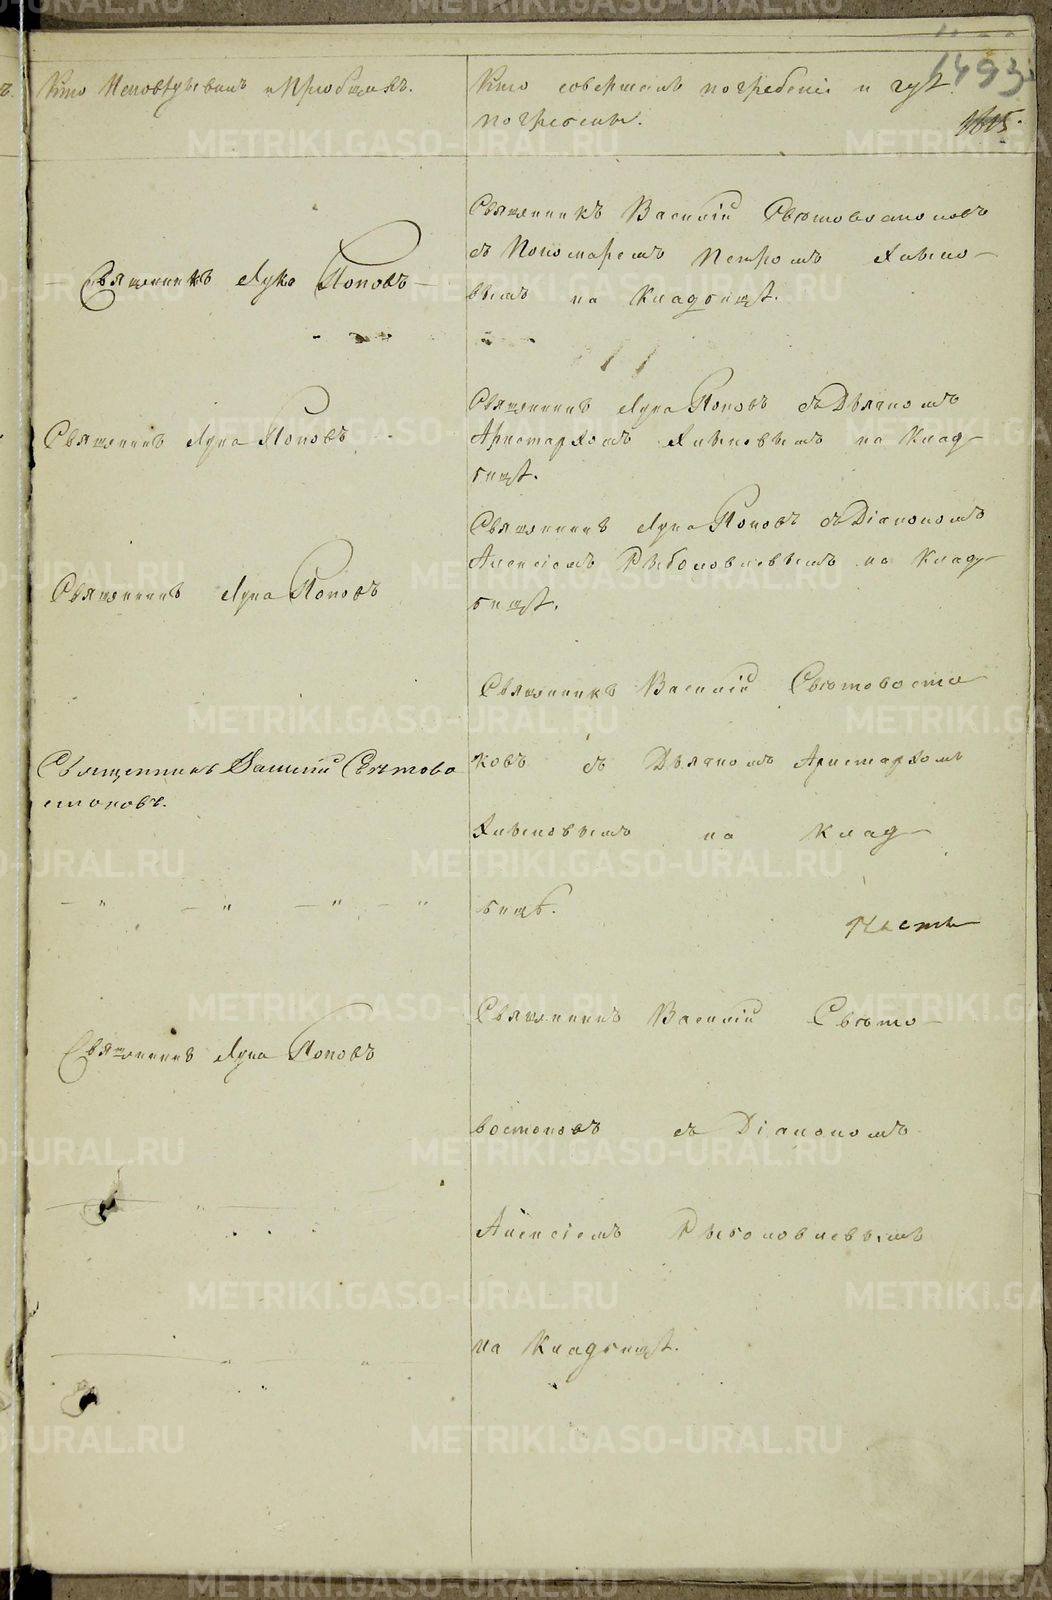 1493
1615.
Кто Исповѣдывалъ и Пріобщалъ.
Кто совершалъ погребеніе и гдѣ
погребены.
Священникъ Лука Поповъ
Священникъ Василій Свѣтовостоковъ
съ Пономаремъ Петромъ
вымъ на Кладбищѣ.
Священникъ Лука Поповъ
Священникъ Лука Поповъ съ Дьячкомъ
Аристархомъ на Клад-
бищѣ.
Священникъ Лука Поповъ
Священникъ Лука Поповъ съ Діакономъ
Алексіемъ Рыболовлевымъ на Клад-
бищѣ.
Священникъ Василій Свѣтово
стоковъ.
Священникъ Василій Свѣтовосто
ковъ съ Дьячкомъ Аристархомъ
на Клад-
бищѣ.
Часть
Священникъ Лука Поповъ
Священникъ Василій Свѣто-
востоковъ съ Діакономъ
Алексіемъ Рыболовлевымъ
на Кладбищѣ.
METRIKI.GASO-URAL.RU